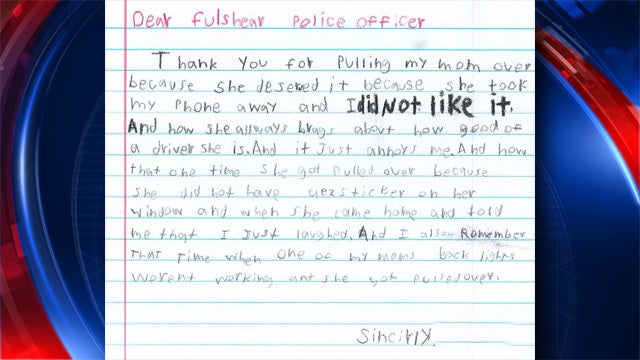 Dear Fulshear Police officer
Thank You for Pulling my mom over
because she deserved it because she took
my Phone away and I did Not like it.
And how she allways brags about how good of
a driver she is. And it Just annoys me. And how
that one time she got Pulled over because
she did not have on her
window and when she came home and told
me that I Just laughed. And I also Remember
That Time when one of my moms back lights
werent working ant she got Pulled over.
Sincirly.